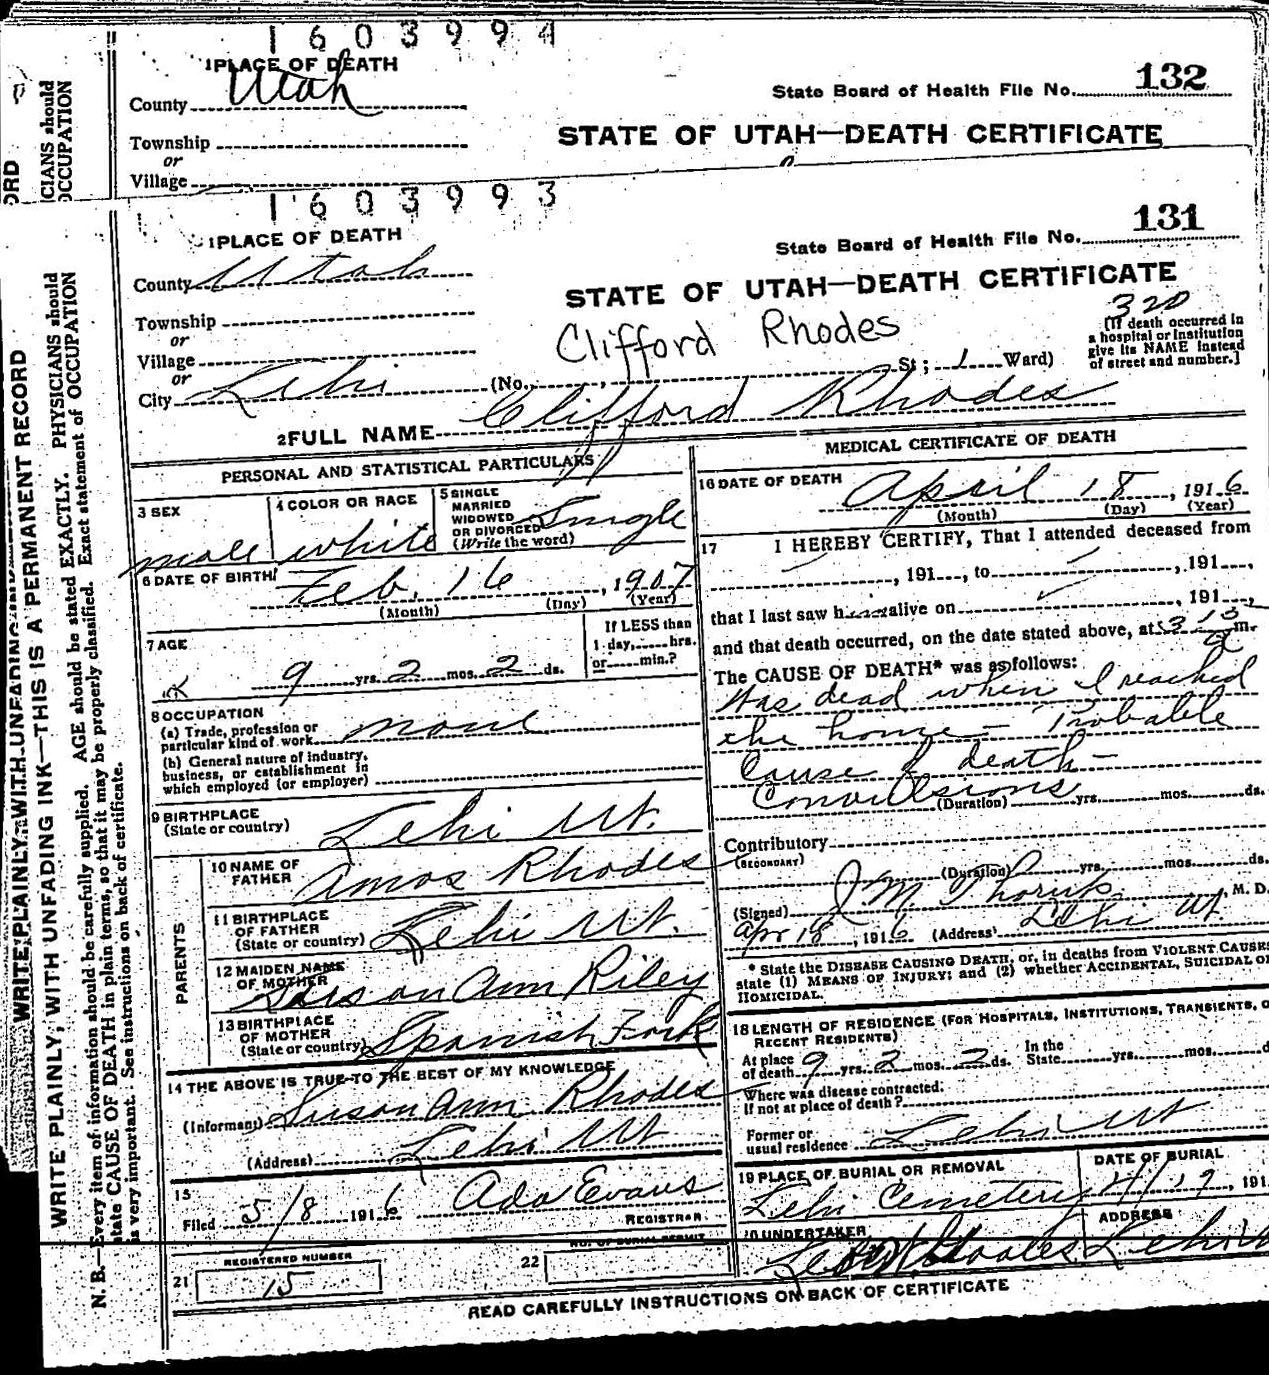 1603994
1 PLACE OF DEATH
County Utah
State Board of Health File No. 132
Township
or
STATE OF UTAH—DEATH CERTIFICATE
Village
1603993
1 PLACE OF DEATH
131
State Board of Health File No.
County Utah
STATE OF UTAH—DEATH CERTIFICATE
Township
or
320
Village
Clifford Rhodes
[If death occurred in
a hospital or institution
give its NAME instead
of street and number.]
or
City Lehi (No. St; 1 Ward)
2 FULL NAME Clifford Rhodes
PERSONAL AND STATISTICAL PARTICULARS
3 SEX
male
4 COLOR OR RACE
white
5 SINGLE
MARRIED
WIDOWED
OR DIVORCED
(Write the word)
Single
6 DATE OF BIRTH
Feb. 16, 1907
(Month) (Day) (Year)
7 AGE
9 yrs. 2 mos. 2 ds.
If LESS than
1 day, hrs.
or min.?
8 OCCUPATION
(a) Trade, profession or
particular kind of work none
(b) General nature of industry,
business, or establishment in
which employed (or employer)
9 BIRTHPLACE
(State or country) Lehi Ut.
PARENTS
10 NAME OF
FATHER Amos Rhodes
11 BIRTHPLACE
OF FATHER
(State or country) Lehi Ut.
12 MAIDEN NAME
OF MOTHER Susan Ann Riley
13 BIRTHPLACE
OF MOTHER
(State or country) Spanish Fork
14 THE ABOVE IS TRUE TO THE BEST OF MY KNOWLEDGE
(Informant) Susan Ann Rhodes
(Address) Lehi Ut
15
Filed 5/8 1916 Ada Evans
REGISTRAR
REGISTERED NUMBER
21 15
NO. OF BURIAL PERMIT
22
MEDICAL CERTIFICATE OF DEATH
16 DATE OF DEATH
April 18, 1916
(Month) (Day) (Year)
17 I HEREBY CERTIFY, That I attended deceased from
, 191 , to , 191 ,
that I last saw h alive on , 191 ,
and that death occurred, on the date stated above, at 3 m.
The CAUSE OF DEATH* was as follows:
Was dead when I reached
the home – Probable
Cause of death –
Convulsions
(Duration) yrs. mos. ds.
Contributory
(SECONDARY)
(Duration) yrs. mos. ds.
(Signed) J. M. M. D.
Apr 18, 1916 (Address) Lehi Ut.
* State the DISEASE CAUSING DEATH, or, in deaths from VIOLENT CAUSES
state (1) MEANS OF INJURY; and (2) whether ACCIDENTAL, SUICIDAL OR
HOMICIDAL.
18 LENGTH OF RESIDENCE (FOR HOSPITALS, INSTITUTIONS, TRANSIENTS, O
RECENT RESIDENTS)
At place
of death 9 yrs. 2 mos. 2 ds.
In the
State yrs. mos. d
Where was disease contracted,
if not at place of death?
Former or
usual residence Lehi Ut
19 PLACE OF BURIAL OR REMOVAL
Lehi Cemetery
DATE OF BURIAL
4/19, 191
20 UNDERTAKER
Rhodes
ADDRESS
Lehi
READ CAREFULLY INSTRUCTIONS ON BACK OF CERTIFICATE
ORD
CIANS should
OCCUPATION
WRITE PLAINLY WITH UNFADING
WRITE PLAINLY, WITH UNFADING INK—THIS IS A PERMANENT RECORD
N. B.—Every item of information should be carefully supplied. AGE should be stated EXACTLY. PHYSICIANS should
state CAUSE OF DEATH in plain terms, so that it may be properly classified. Exact statement of OCCUPATION
is very important. See instructions on back of certificate.